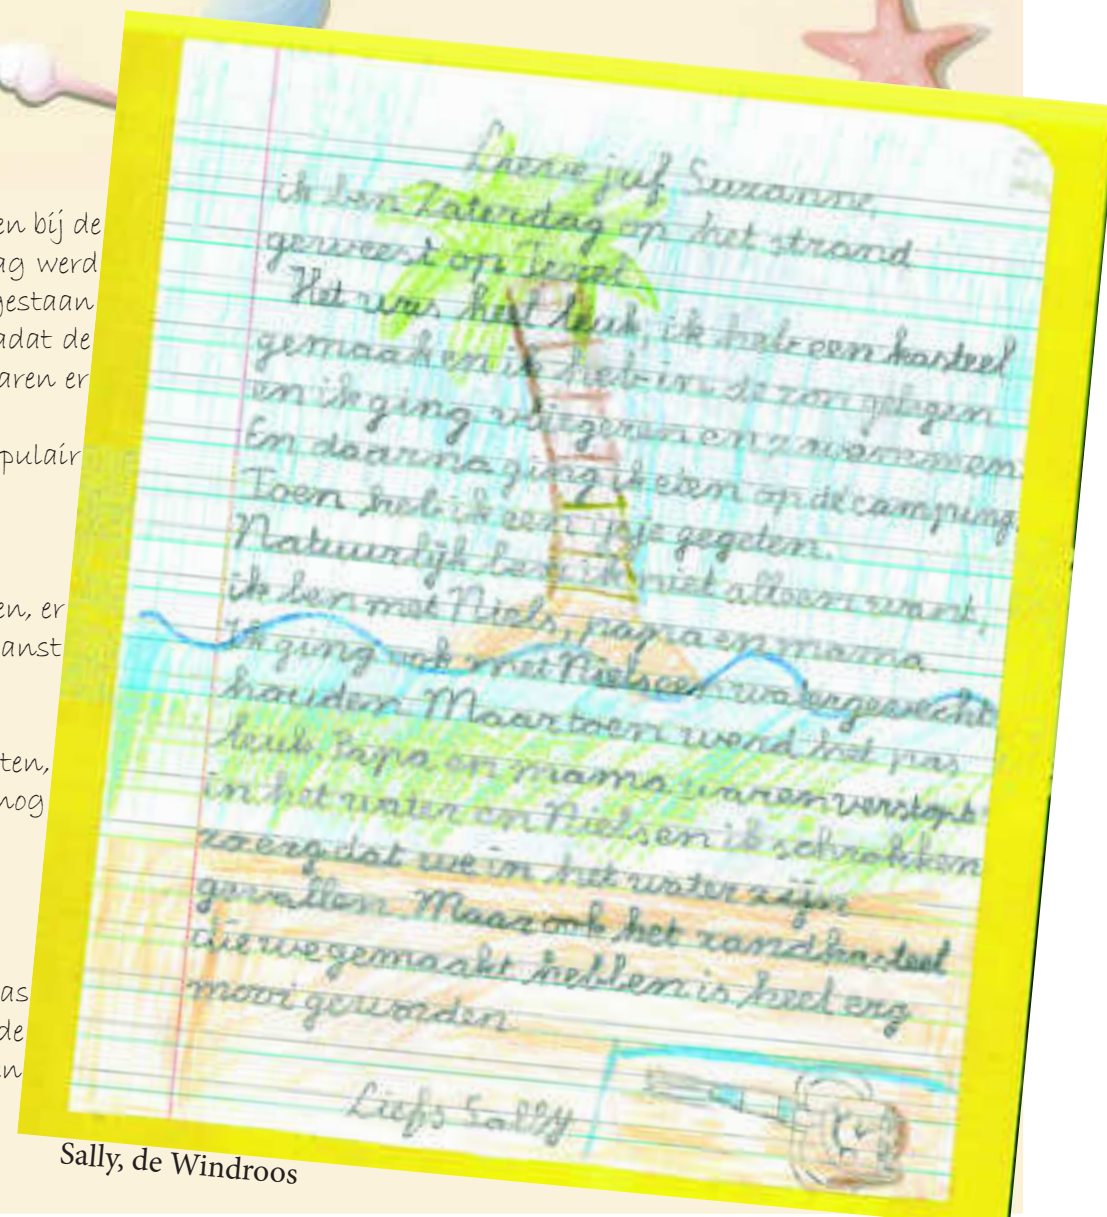 en bij de
ag werd
gestaan
adat de
aren er
pulair
en, er
anst
ten,
nog
as
de
en
Lieve juf Suzanne,
ik ben Zaterdag op het strand
geweest op Texel
Het was heel leuk, ik heb een kasteel
gemaakt en ik heb in de zon gelegen
en ik ging vliegeren en zwemmen.
En daarna ging ik eten op de camping.
Toen heb ik een ijsje gegeten.
Natuurlijk ben ik niet alleen want,
ik ben met Niels, papa en mama.
Ik ging ook met Niels een watergevecht
houden Maar toen werd het pas
leuk Papa en mama waren verstopt
in het water en Niels en ik schrokken
zo erg dat we in het water zijn
gevallen. Maar ook het zandkasteel
die we gemaakt hebben is heel erg
mooi geworden
Liefs Sally
Sally, de Windroos